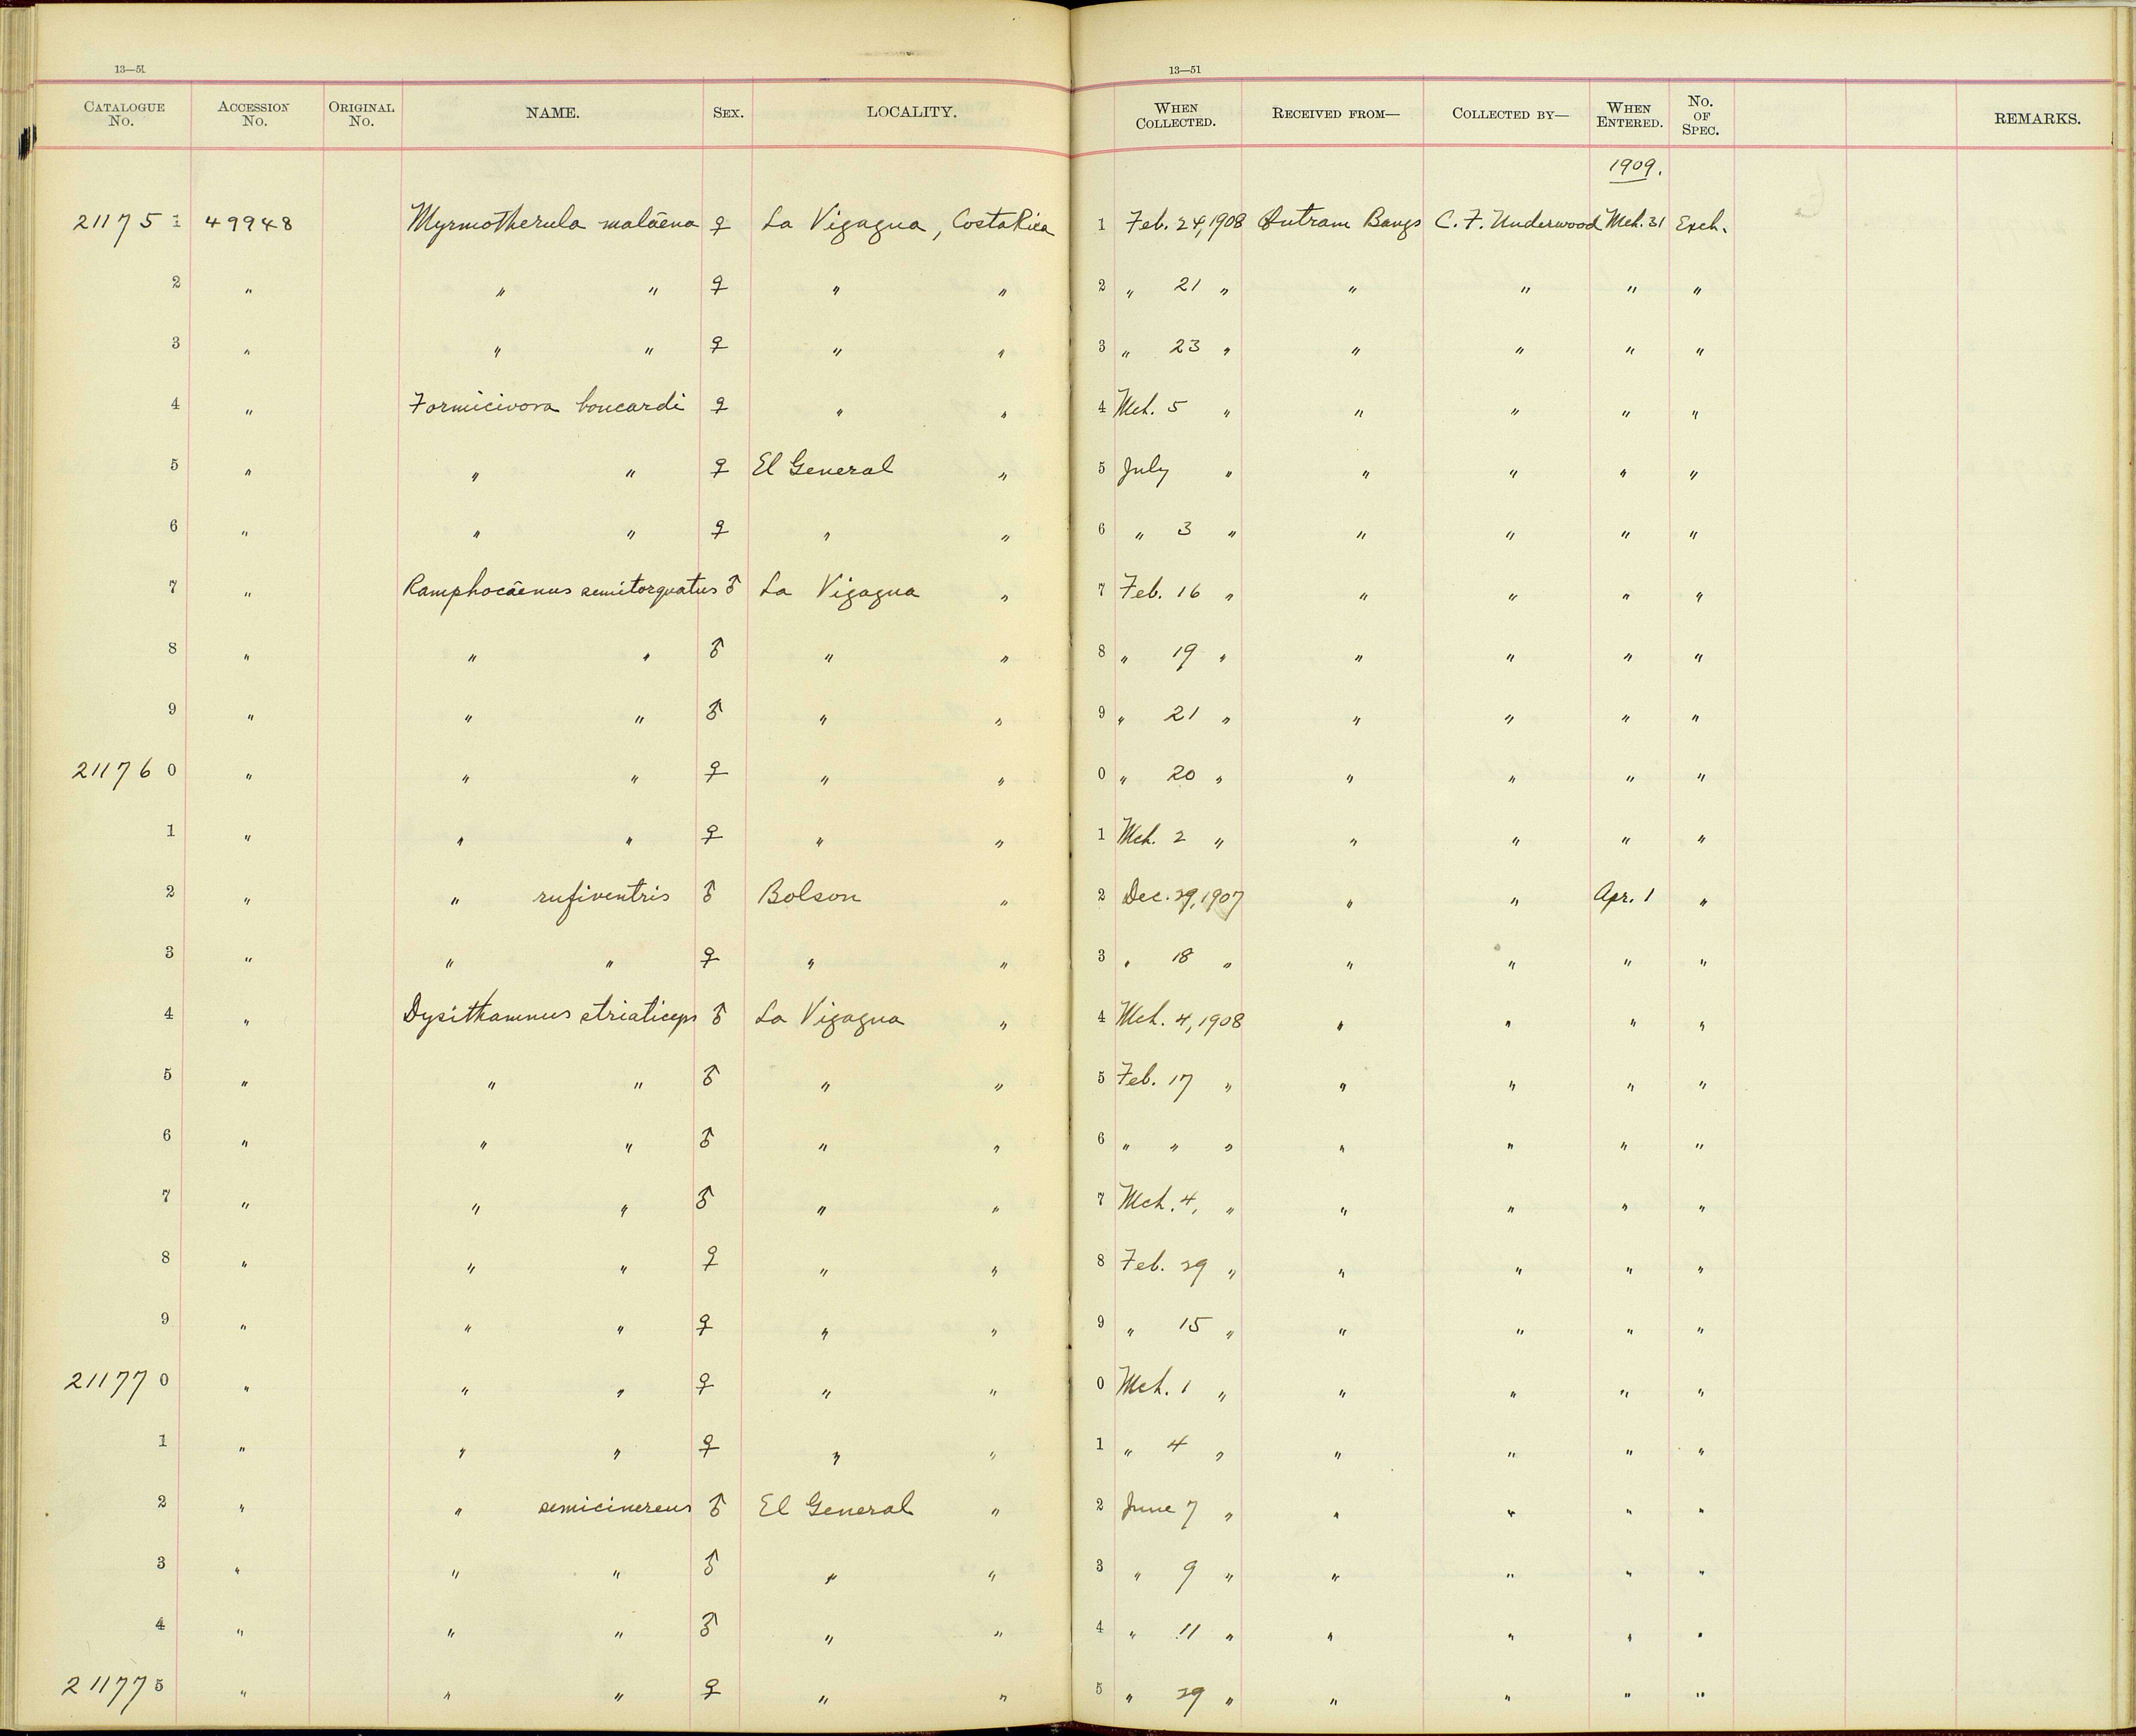 13—51 13—51
CATALOGUE No. ACCESSION No. ORIGINAL No. NAME. SEX. LOCALITY. WHEN COLLECTED. RECEIVED FROM— COLLECTED BY— WHEN ENTERED. No. OF SPEC. REMARKS.
1909.
211751 49948 Myrmotherula malæna ♀ La Vigagua, Costa Rica 1 Feb. 24, 1908 Outram Bangs C. F. Underwood Mch. 31 Exch.
2 " " " ♀ " " 2 " 21 " " " " "
3 " " " ♀ " " 3 " 23 " " " " "
4 " Formicivora boucardi ♀ " " 4 Mch. 5 " " " " "
5 " " " ♀ El General " 5 July " " " " "
6 " " " ♀ " " 6 " 3 " " " " "
7 " Ramphocænus semitorquatus ♂ La Vigagua " 7 Feb. 16 " " " " "
8 " " " ♂ " " 8 " 19 " " " " "
9 " " " ♂ " " 9 " 21 " " " " "
211760 " " " ♀ " " 0 " 20 " " " " "
1 " " " ♀ " " 1 Mch. 2 " " " " "
2 " " rufiventris ♂ Bolson " 2 Dec. 29, 1907 " " Apr. 1 "
3 " " " ♀ " " 3 " 18 " " " " "
4 " Dysithamnus striaticeps ♂ La Vigagua " 4 Mch. 4, 1908 " " " "
5 " " " ♂ " " 5 Feb. 17 " " " " "
6 " " " ♂ " " 6 " " " " " " "
7 " " " ♂ " " 7 Mch. 4, " " " " "
8 " " " ♀ " " 8 Feb. 29 " " " " "
9 " " " ♀ " " 9 " 15 " " " " "
211770 " " " ♀ " " 0 Mch. 1 " " " " "
1 " " " ♀ " " 1 " 4 " " " " "
2 " " semicinereus ♂ El General " 2 June 7 " " " " "
3 " " " ♂ " " 3 " 9 " " " " "
4 " " " ♂ " " 4 " 11 " " " " "
211775 " " " ♀ " " 5 " 29 " " " " "